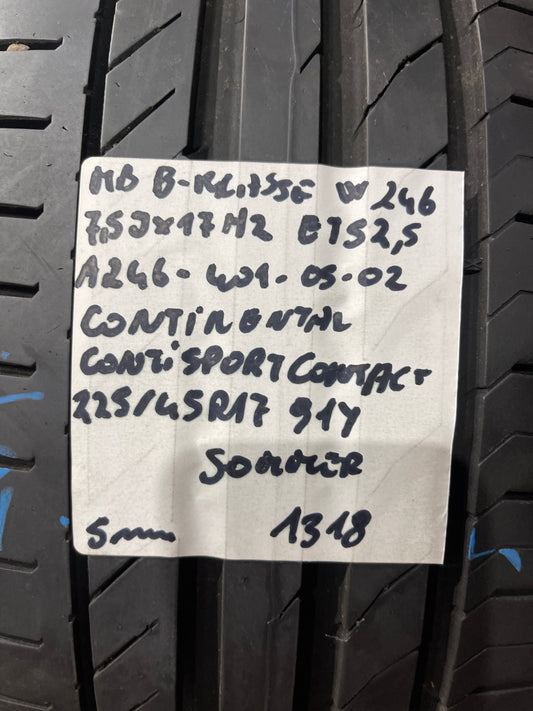 MB B-KLASSE W246
7,5Jx17H2 ET52,5
A246-401-05-02
CONTINENTAL
CONTISPORTCONTACT
225/45R17 91Y
SOMMER
5mm 1318